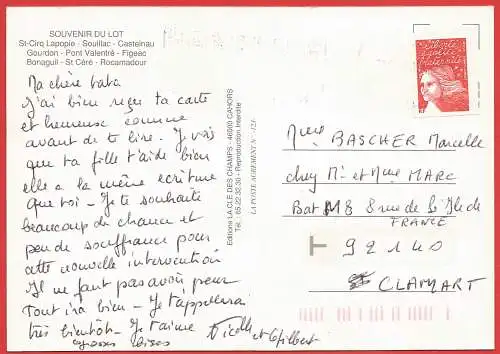 SOUVENIR DU LOT
St-Cirq Lapopie - Souillac - Castelnau
Gourdon - Pont Valentré - Figeac
Bonaguil - St Céré - Rocamadour
Ma chère
J'ai bien reçu ta carte
et heureuse comme
avant de te lire. Je vois
que ta fille t'aide bien
elle a la même écriture
que toi - Je te souhaite
beaucoup de chance et
peu de souffrance pour
cette nouvelle intervention
Il ne faut pas avoir peur
tout ira bien - Je t'appellerai
très bientôt - Je t'aime
grosses bises
Nicole et Gilbert
Editions LA CLE DES CHAMPS - 46000 CAHORS
Tél. : 65.22.32.36 - Reproduction interdite
LA POSTE AGREMENT N°
Liberté
Egalité
Fraternité
RF
Mme BASCHER Marcelle
chez Mr et Mme MARC
Bat M8 8 rue de l'Ile de
FRANCE
T 92140
CLAMART